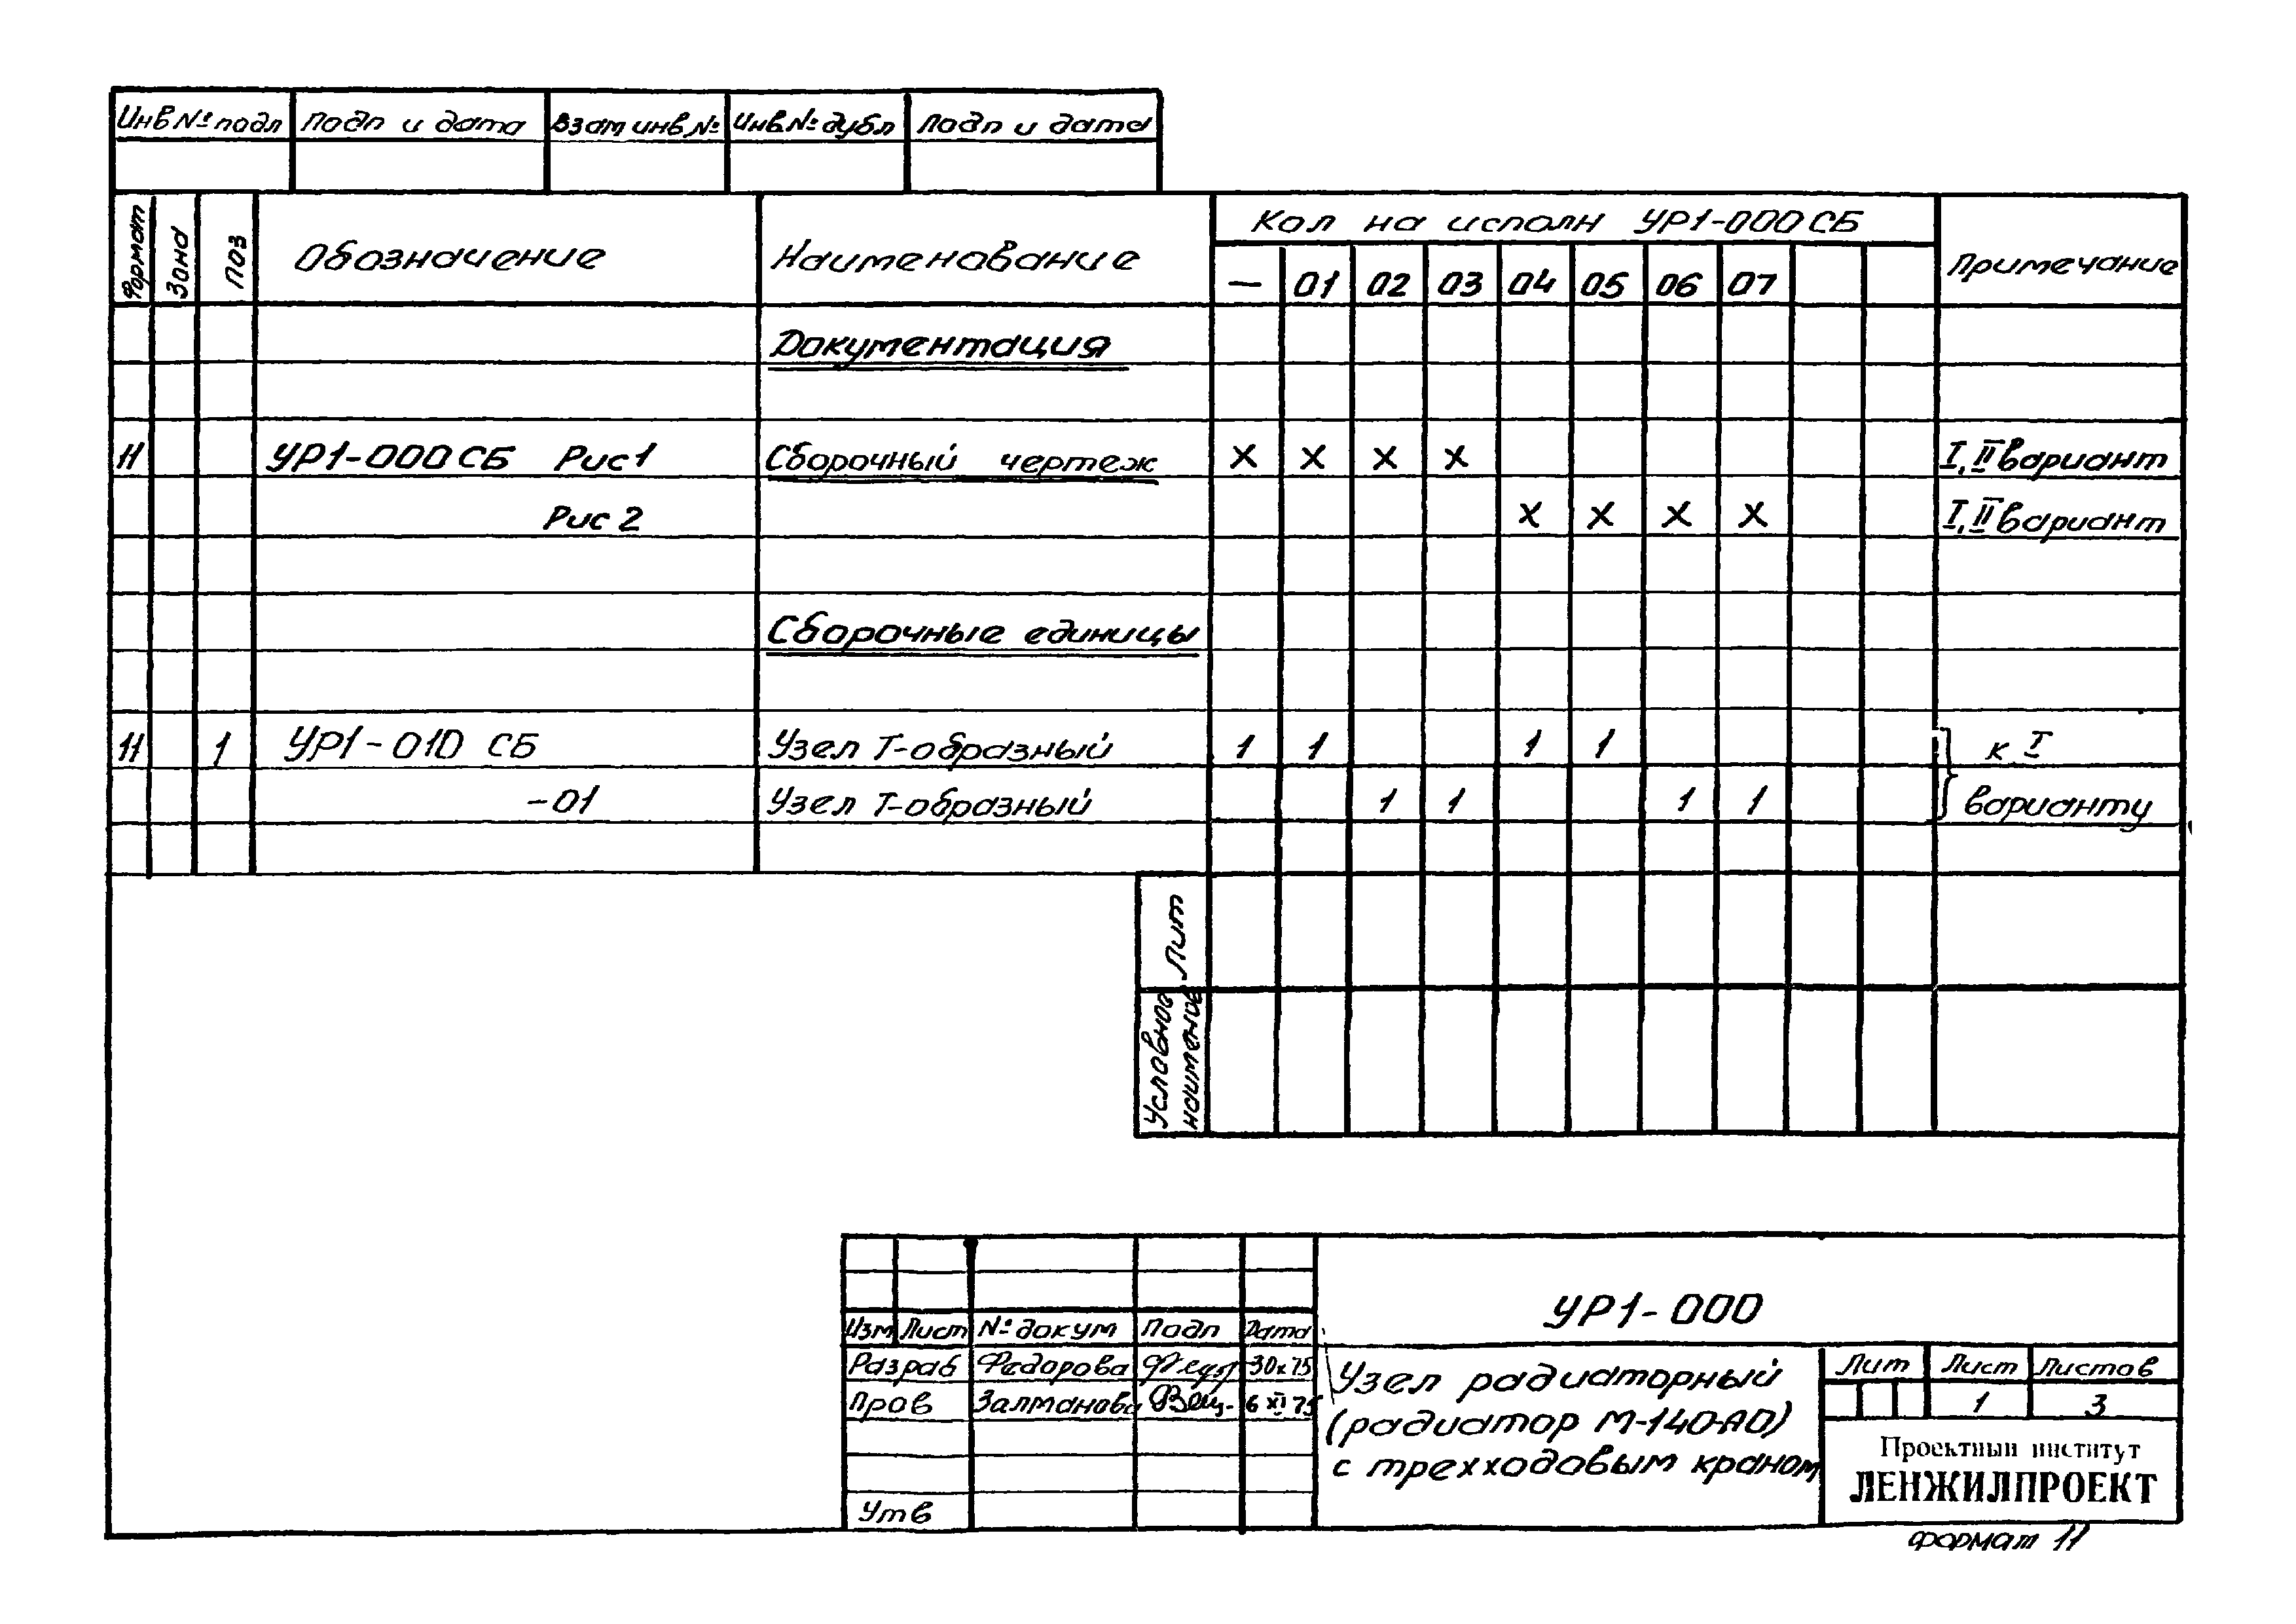 Инв № подл Подп и дата Взам инв № Инв № дубл Подп и дата
Формат Зона Поз Обозначение Наименование Кол на исполн УР1-000 СБ Примечание
— 01 02 03 04 05 06 07
Документация
11 УР1-000 СБ Рис 1 Сборочный чертеж X X X X I, II вариант
Рис 2 X X X X I, II вариант
Сборочные единицы
11 1 УР1-010 СБ Узел Т-образный 1 1 1 1 к I
-01 Узел Т-образный 1 1 1 1 варианту
Лит
Условное
наименов
УР1-000
Изм Лист № докум Подп Дата
Разраб Федорова 30 X 75
Пров Залманова 6 XI 75
Утв
Узел радиаторный
(радиатор М-140-АО)
с трехходовым краном
Лит Лист Листов
1 3
Проектный институт
ЛЕНЖИЛПРОЕКТ
формат 11